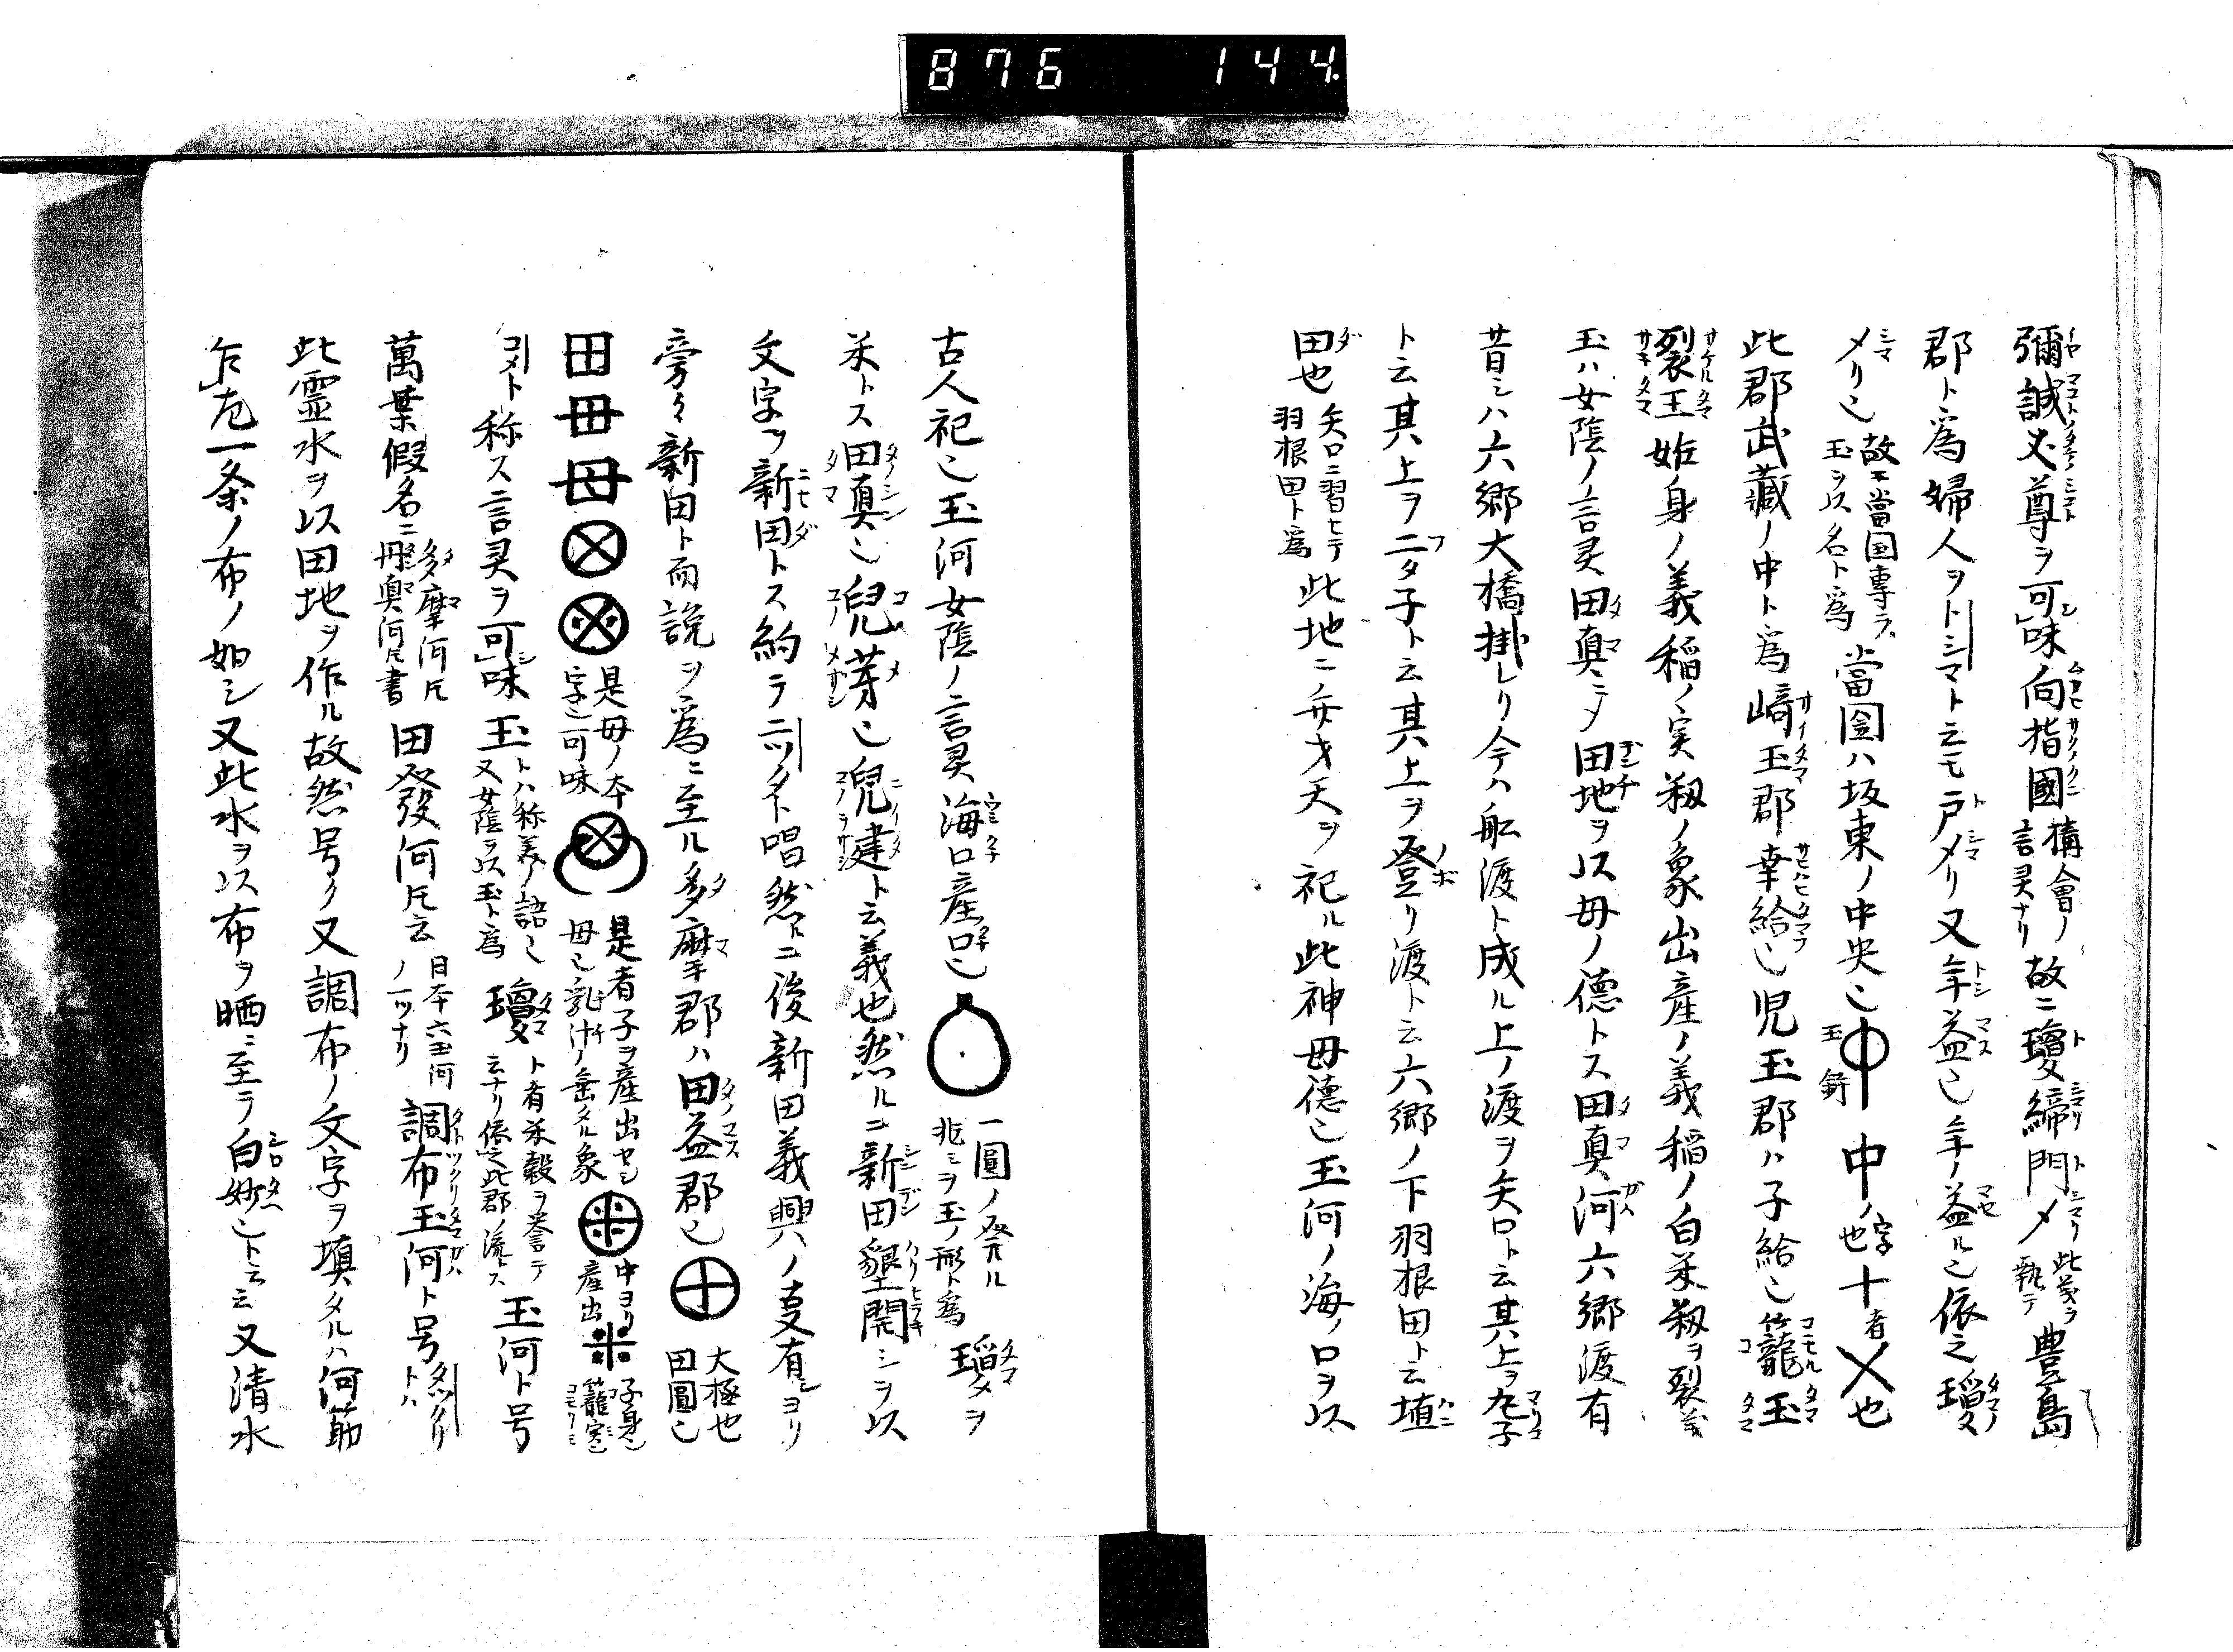 876 144
彌誠必尊ヲ可味向指國構會ノ言灵ナリ故ニ瓊締門〆此義ヲ執テ豊島
郡ト為婦人ヲトシマト云モ戸〆リ又年益也年ノ益ル也依之瓊
〆リ也故ニ當国専ラ玉ヲ以名ト為當国ハ坂東ノ中央也玉鉾中ノ字也十者㐅也
此郡武藏ノ中ト為﨑玉郡幸給也児玉郡ハ子給也籠玉
裂玉姙身ノ義稲ノ実籾ノ象出産ノ義稲ノ白米籾ヲ裂義
玉ハ女陰ノ言灵田真ニ〆田地ヲ以母ノ德トス田真河六郷渡有
昔シハ六郷大橋掛レリ今ハ舩渡ト成ル上ノ渡ヲ矢口ト云其上ヲ丸子
ト云其上ヲ二タ子ト云其上ヲ登リ渡ト云六郷ノ下羽根田ト云埴
田也矢口ニ習ヒテ羽根田ト為此地ニ弁才天ヲ祀ル此神母德也玉河ノ海ノ口ヲ以
古人祀也玉河女陰ノ言灵海口産口也一圓ノ発ル兆シヲ玉ノ形ト為瑙〆ヲ
米トス田真也兒芽也兒建ト云義也然ルニ新田墾開シヲ以
文字ヲ新田トス約テニツタト唱然ルニ後新田義興ノ叓有シヨリ
旁々新田ト而説ヲ為ニ至ル多摩郡ハ田益郡也大極也田圓也
田毌母是母ノ本字也可味是者子ヲ産出セシ母也乳汁ノ垂タル象中ヨリ産出米子身也籠実也
コメト称ス言灵ヲ可味玉トハ称美ノ語也又女陰ヲ以玉ト為瓊ト有米穀ヲ誉テ云ナリ依之此郡ノ流トス玉河ト号
萬葉假名ニ多摩河氏冊奥河氏書田發河氏云日本六玉河ノ一ツナリ調布玉河ト号タツクリトハ
此霊水ヲ以田地ヲ作ル故然号ク又調布ノ文字ヲ填タルハ河莭
乍左一条ノ布ノ如シ又此水ヲ以布ヲ晒ニ至ラ白妙也ト云又清水